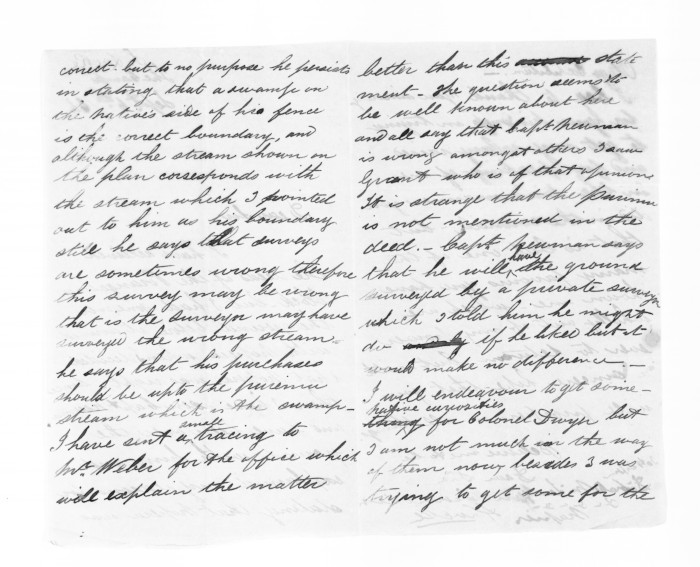 correct - but to no purpose he persists
in stating that a swamp on
the native's side of his fence
is the correct boundary, and
although the stream shown on
the plan corresponds with
the stream which I pointed
out to him as his boundary
still he says that surveys
are sometimes wrong therefore
this survey may be wrong
that is the surveyor may have
surveyed the wrong stream -
he says that his purchases
should be upto the puremu
stream which is the swamp -
I have sent a tracing to
Mr Weber for the office which
will explain the matter
better than this state
ment - the question seems to
be well known about here
and all say that Capt Newman
is wrong amongst others I saw
Grant who is of that opinion
It is strange that the Puremu
is not mentioned in the
deed. - Capt Newman says
that he will have the ground
surveyed by a private surveyor
which I told him he might
do if he liked but it
would make no difference. -
I will endeavour to get some -
native curiosities
thing for Colonel Dwyer but
I am not much in the way
of them now, besides I was
trying to get some for the